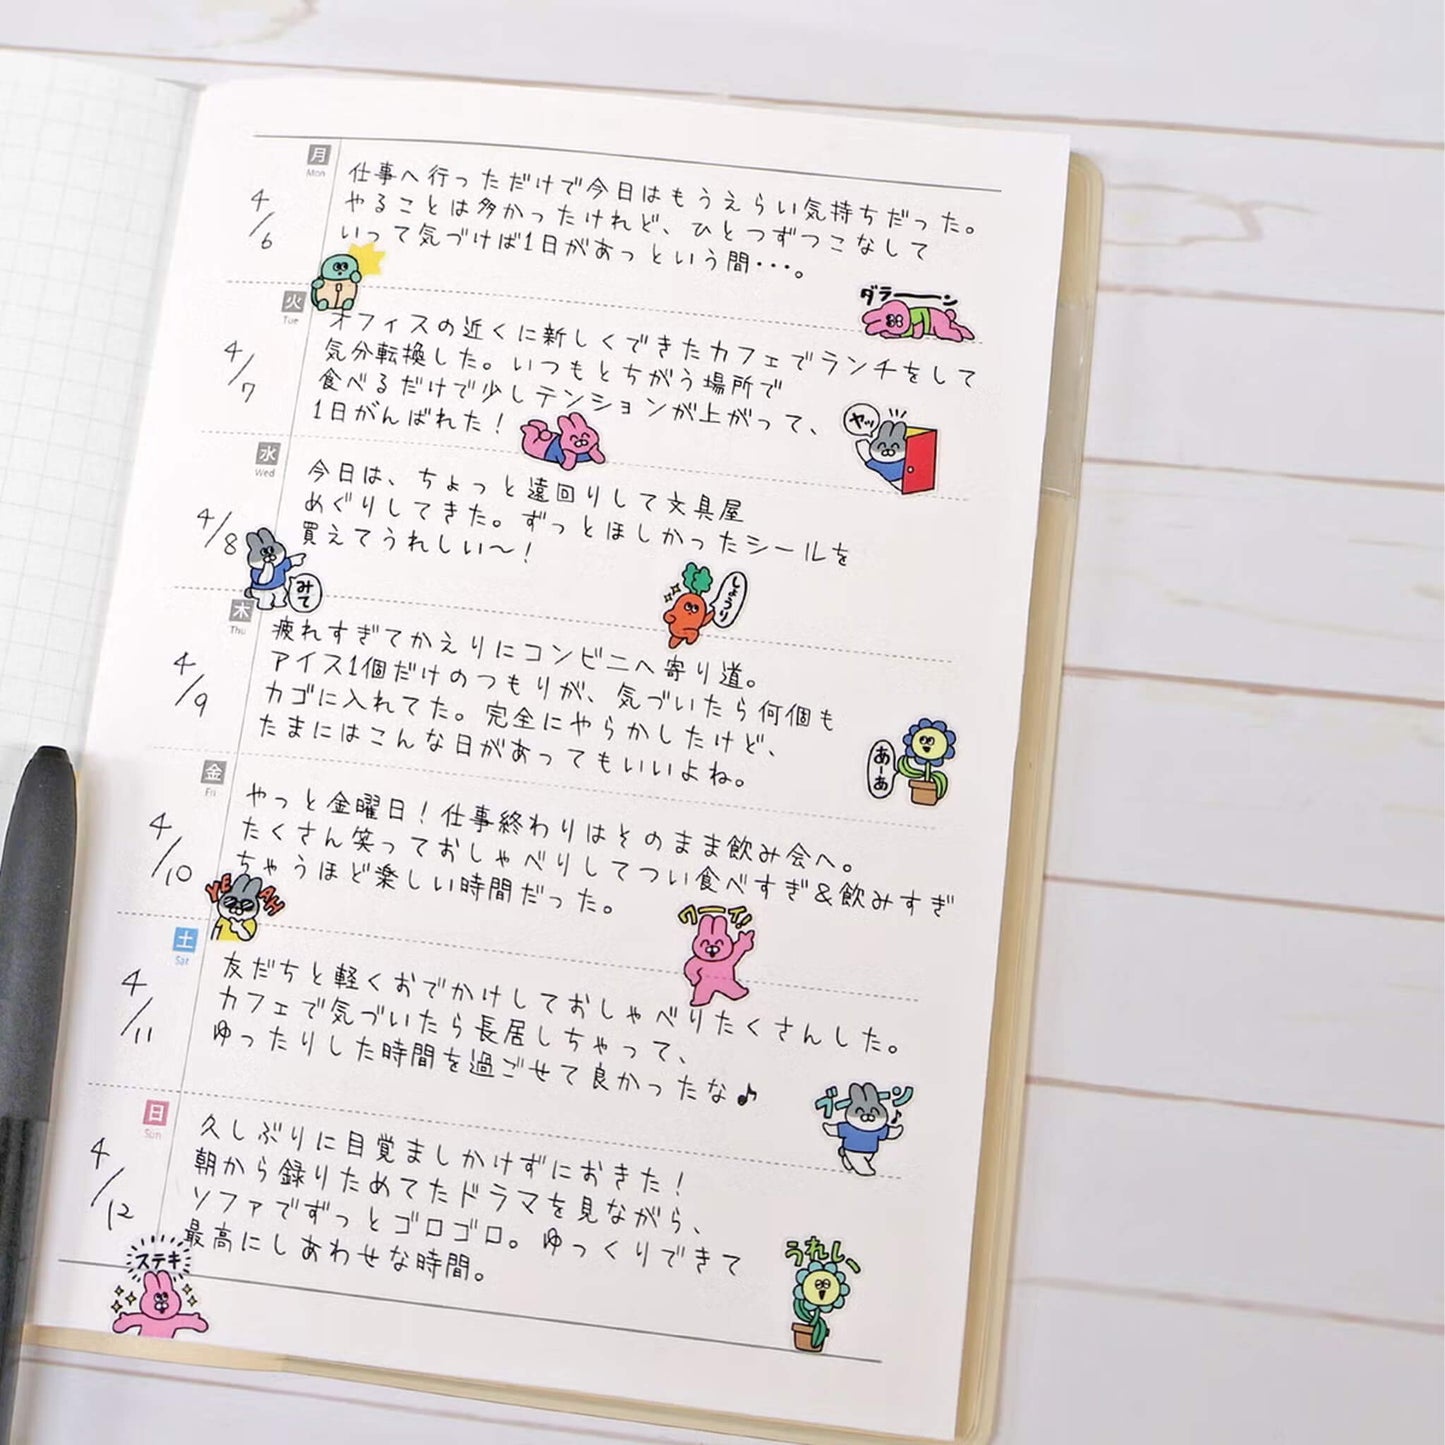 月
Mon
4/6
仕事へ行っただけで今日はもうえらい気持ちだった。
やることは多かったけれど、ひとつずつこなして
いって気づけば1日があっという間・・・。
ダラーーン
火
Tue
4/7
オフィスの近くに新しくできたカフェでランチをして
気分転換した。いつもとちがう場所で
食べるだけで少しテンションが上がって、
1日がんばれた！
ヤッ
水
Wed
4/8
今日は、ちょっと遠回りして文具屋
めぐりしてきた。ずっとほしかったシールを
買えてうれしい〜！
みて
しょうり
木
Thu
4/9
疲れすぎてかえりにコンビニへ寄り道。
アイス1個だけのつもりが、気づいたら何個も
カゴに入れてた。完全にやらかしたけど、
たまにはこんな日があってもいいよね。
あーあ
金
Fri
4/10
やっと金曜日！仕事終わりはそのまま飲み会へ。
たくさん笑っておしゃべりしてつい食べすぎ&飲みすぎ
ちゃうほど楽しい時間だった。
YEAH
ワーイ!
土
Sat
4/11
友だちと軽くおでかけしておしゃべりたくさんした。
カフェで気づいたら長居しちゃって、
ゆったりした時間を過ごせて良かったな♪
ブーーン♪
日
Sun
4/12
久しぶりに目覚ましかけずにおきた！
朝から録りためてたドラマを見ながら、
ソファでずっとゴロゴロ。ゆっくりできて
最高にしあわせな時間。
ステキ
うれしー